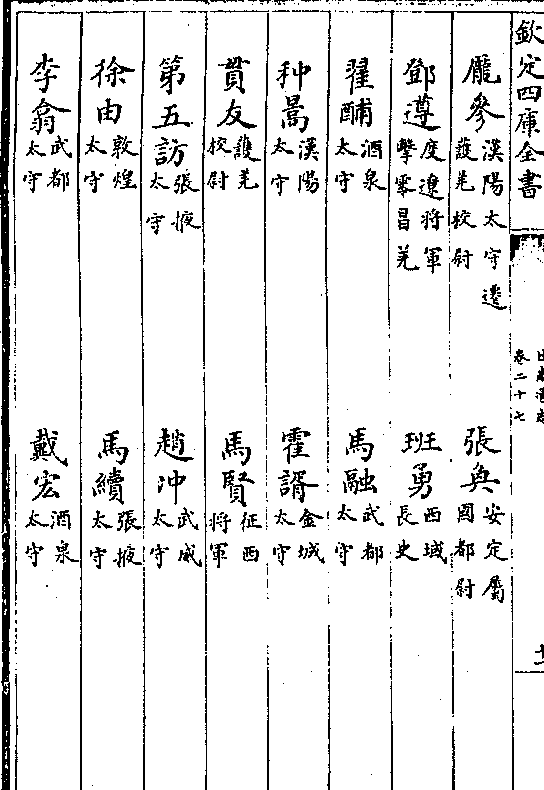 欽定四庫全書
卷二十七
龐參 漢陽太守遷護羌校尉 張奐 安定屬國都尉
鄧遵 度遼將軍擊零昌羌 班勇 西域長史
翟酺 酒泉太守 馬融 武都太守
种暠 漢陽太守 霍諝 金城太守
貫友 護羌校尉 馬賢 征西將軍
第五訪 張掖太守 趙冲 武威太守
徐由 敦煌太守 馬續 張掖太守
李翕 武都太守 戴宏 酒泉太守